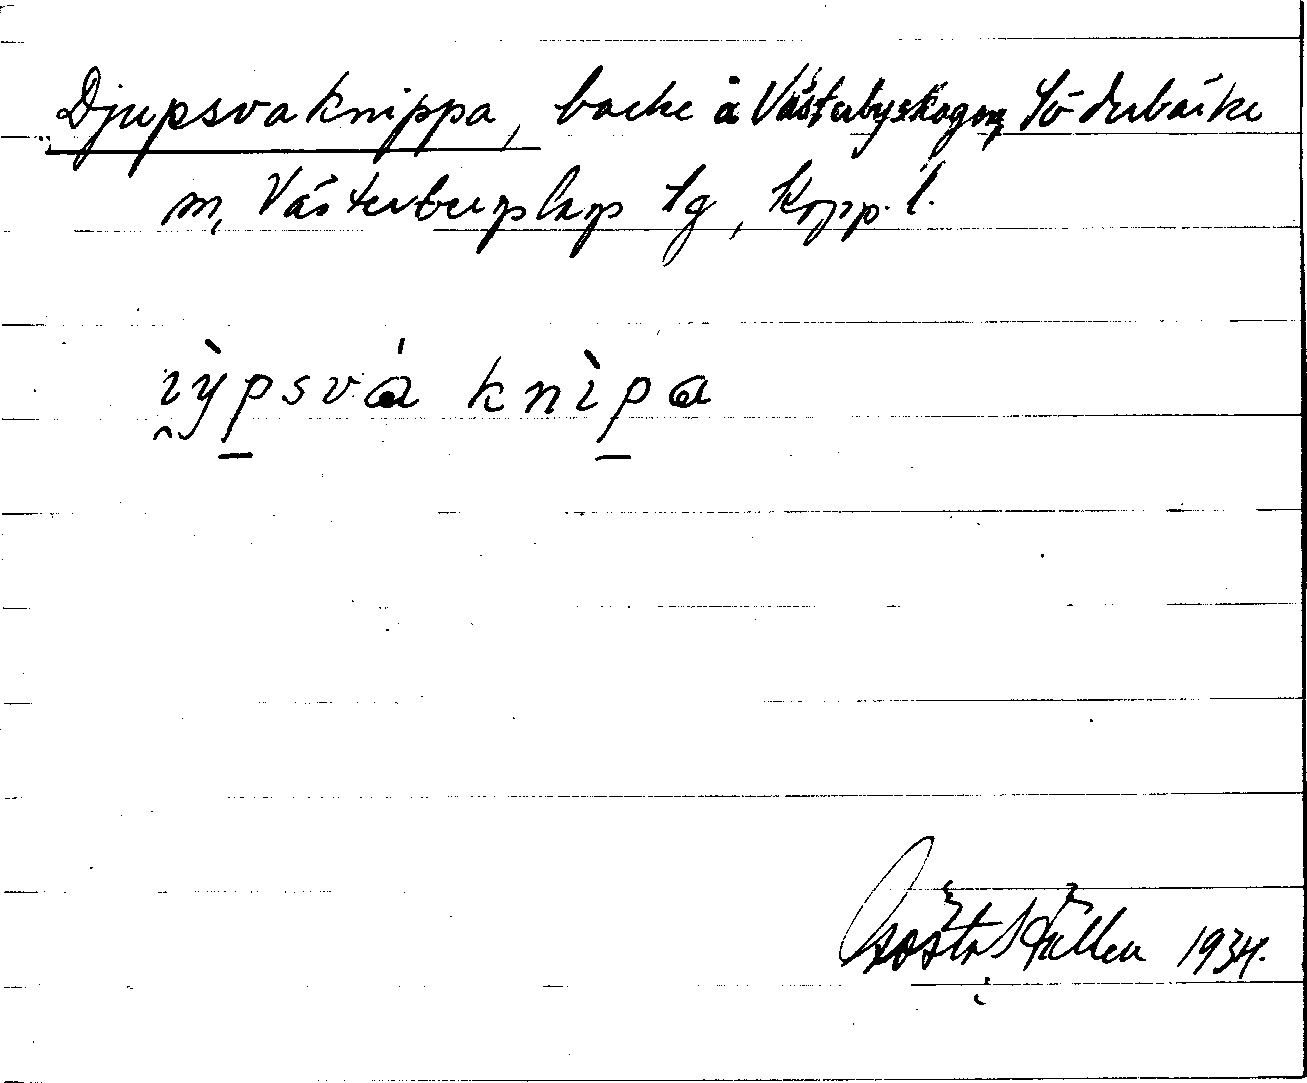 Djupsvaknippa, backe å Västerbyskogen, Söderbärke
sn, Västerbergslags tg, Kopp. l.
ìy̆psvá knìpa
Gösta Stållen 1934.